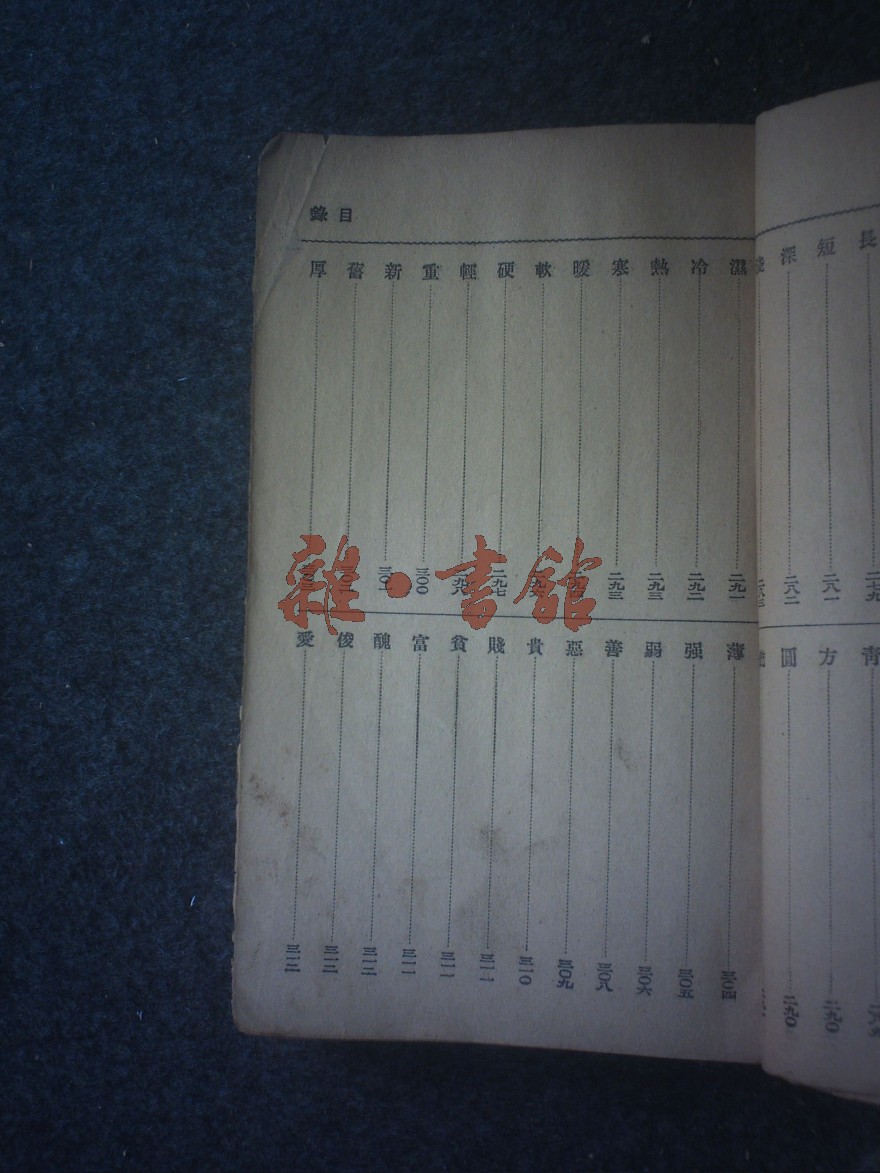 長 二七九
短 二八一
深 二八二
二八三
青
方 二九〇
圓 二九〇
目錄
濕 二九一
冷 二九二
熱 二九三
寒 二九三
暖
軟
硬 二九七
輕
重 三〇〇
新 三〇一
舊
厚
薄 三〇四
强 三〇五
弱 三〇六
善 三〇八
惡 三〇九
貴 三一〇
賤 三一一
貧 三一一
富 三一一
醜 三一二
俊 三一二
愛 三一二
雜·書館